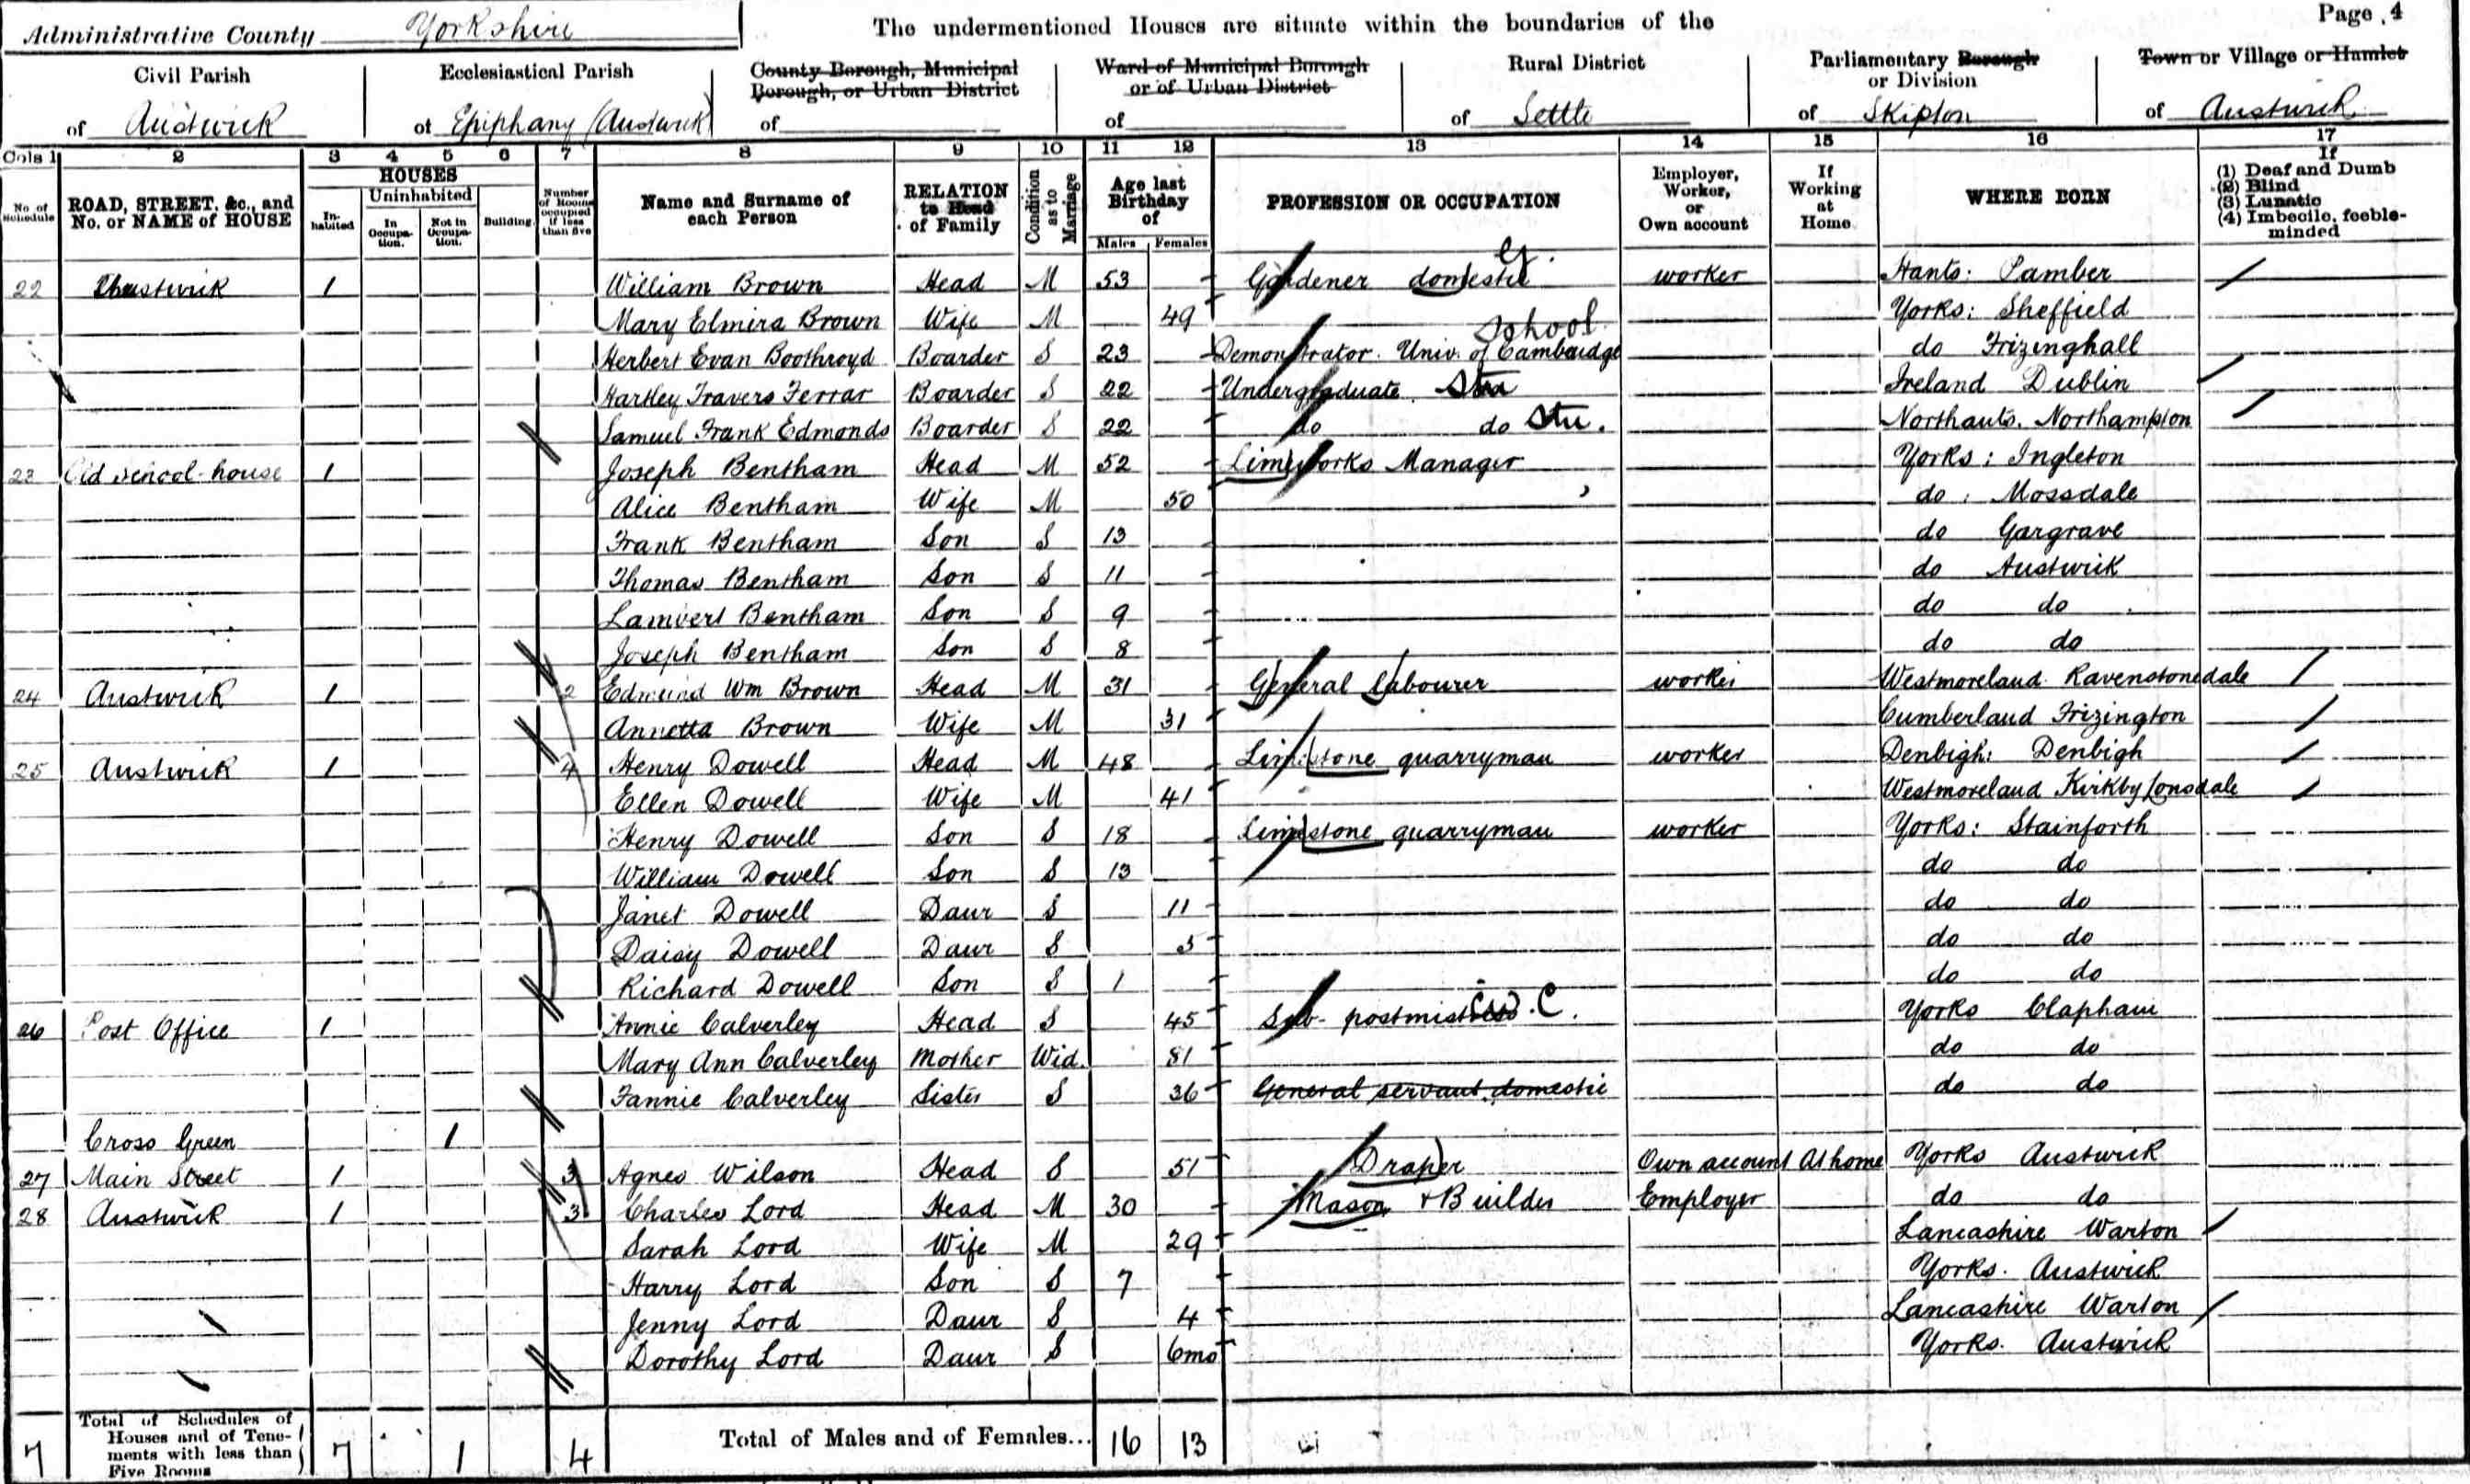 Administrative County Yorkshire The undermentioned Houses are situate within the boundaries of the Page 4
Civil Parish Ecclesiastical Parish County Borough, Municipal Borough, or Urban District Ward of Municipal Borough or of Urban District Rural District Parliamentary Borough or Division Town or Village or Hamlet
of Austwick of Epiphany (Austwick) of of of Settle of Skipton of Austwick
Cols 1 2 3 4 5 6 7 8 9 10 11 12 13 14 15 16 17
No. of Schedule ROAD, STREET, &c., and No. or NAME of HOUSE HOUSES Inhabited Uninhabited In Occupation. Not in Occupation. Building. Number of Rooms occupied if less than five Name and Surname of each Person RELATION to Head of Family Condition as to Marriage Age last Birthday of Males Females PROFESSION OR OCCUPATION Employer, Worker, or Own account If Working at Home WHERE BORN If (1) Deaf and Dumb (2) Blind (3) Lunatic (4) Imbecile, feeble-minded
22 Austwick 1 William Brown Head M 53 Gardener domestic worker Hants: Pamber
Mary Elmira Brown Wife M 49 Yorks: Sheffield
School
Herbert Evan Boothroyd Boarder S 23 Demonstrator. Univ. of Cambridge do Frizinghall
Hartley Travers Ferrar Boarder S 22 Undergraduate Stu Ireland Dublin
Samuel Frank Edmonds Boarder S 22 do do Stu. Northants. Northampton
23 Old School-house 1 Joseph Bentham Head M 52 Limeworks Manager Yorks: Ingleton
Alice Bentham Wife M 50 do: Mossdale
Frank Bentham Son S 13 do Gargrave
Thomas Bentham Son S 11 do Austwick
Lambert Bentham Son S 9 do do
Joseph Bentham Son S 8 do do
24 Austwick 1 2 Edmund Wm Brown Head M 31 General labourer worker Westmoreland Ravenstonedale
Annetta Brown Wife M 31 Cumberland Frizington
25 Austwick 1 4 Henry Dowell Head M 48 Limestone quarryman worker Denbigh: Denbigh
Ellen Dowell Wife M 41 Westmoreland Kirkby Lonsdale
Henry Dowell Son S 18 Limestone quarryman worker Yorks: Stainforth
William Dowell Son S 13 do do
Janet Dowell Daur S 11 do do
Daisy Dowell Daur S 5 do do
Richard Dowell Son S 1 do do
26 Post Office 1 Annie Calverley Head S 45 Sub-postmistress C. Yorks Clapham
Mary Ann Calverley Mother Wid. 81 do do
Fannie Calverley Sister S 36 General servant domestic do do
Cross Green 1
27 Main Street 1 3 Agnes Wilson Head S 51 Draper Own account At home Yorks Austwick
28 Austwick 1 3 Charles Lord Head M 30 Mason + Builder Employer do do
Sarah Lord Wife M 29 Lancashire Warton
Harry Lord Son S 7 Yorks. Austwick
Jenny Lord Daur S 4 Lancashire Warton
Dorothy Lord Daur S 6mo Yorks. Austwick
7 Total of Schedules of Houses and of Tenements with less than Five Rooms 7 1 4 Total of Males and of Females... 16 13